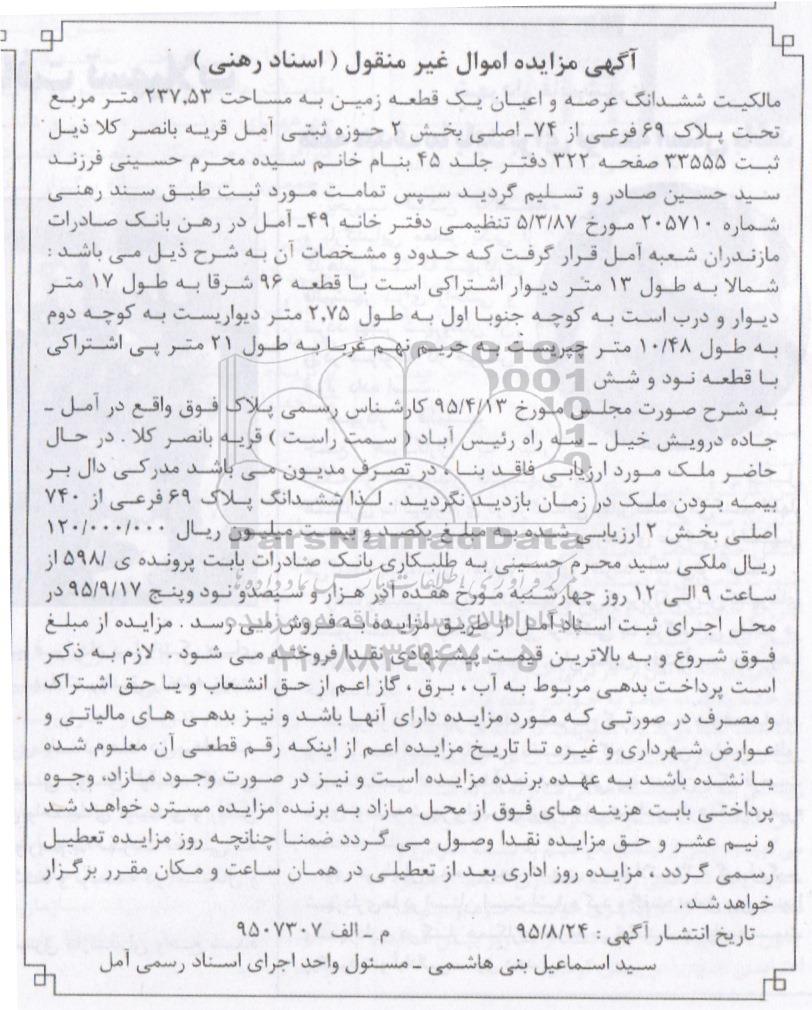 آگهی مزایده اموال غیر منقول ( اسناد رهنی )
مالکیت ششدانگ عرصه و اعیان یک قطعه زمین به مساحت ۲۳۷,۵۳ متر مربع
تحت پلاک ۶۹ فرعی از ۷۴ـ اصلی بخش ۲ حوزه ثبتی آمل قریه بانصر کلا ذیل
ثبت ۳۳۵۵۵ صفحه ۳۲۲ دفتر جلد ۴۵ بنام خانم سیده محرم حسینی فرزند
سید حسین صادر و تسلیم گردید سپس تمامت مورد ثبت طبق سند رهنی
شماره ۲۰۵۷۱۰ مورخ ۵/۳/۸۷ تنظیمی دفتر خانه ۴۹ـ آمل در رهن بانک صادرات
مازندران شعبه آمل قرار گرفت که حدود و مشخصات آن به شرح ذیل می باشد :
شمالا به طول ۱۳ متر دیوار اشتراکی است با قطعه ۹۶ شرقا به طول ۱۷ متر
دیوار و درب است به کوچه جنوبا اول به طول ۲,۷۵ متر دیواریست به کوچه دوم
به طول ۱۰/۴۸ متر چپریست به حریم نهم غربا به طول ۲۱ متر پی اشتراکی
با قطعه نود و شش
به شرح صورت مجلس مورخ ۹۵/۴/۱۳ کارشناس رسمی پلاک فوق واقع در آمل ـ
جاده درویش خیل ـ سه راه رئیس آباد ( سمت راست ) قریه بانصر کلا . در حال
حاضر ملک مورد ارزیابی فاقد بنا ، در تصرف مدیون می باشد مدرکی دال بر
بیمه بودن ملک در زمان بازدید نگردید. لذا ششدانگ پلاک ۶۹ فرعی از ۷۴۰
اصلی بخش ۲ ارزیابی شده به مبلغ یکصد و بیست میلیون ریال ۱۲۰/۰۰۰/۰۰۰
ریال ملکی سید محرم حسینی به طلبکاری بانک صادرات بابت پرونده ی /۵۹۸ از
ساعت ۹ الی ۱۲ روز چهارشنبه مورخ هفده آذر هزار و سیصدو نود وپنج ۹۵/۹/۱۷ در
محل اجرای ثبت اسناد آمل از طریق مزایده به فروش می رسد . مزایده از مبلغ
فوق شروع و به بالاترین قیمت پیشنهادی نقدا فروخته می شود . لازم به ذکر
است پرداخت بدهی مربوط به آب ، برق ، گاز اعم از حق انشعاب و یا حق اشتراک
و مصرف در صورتی که مورد مزایده دارای آنها باشد و نیز بدهی های مالیاتی و
عوارض شهرداری و غیره تا تاریخ مزایده اعم از اینکه رقم قطعی آن معلوم شده
یا نشده باشد به عهده برنده مزایده است و نیز در صورت وجود مازاد، وجوه
پرداختی بابت هزینه های فوق از محل مازاد به برنده مزایده مسترد خواهد شد
و نیم عشر و حق مزایده نقدا وصول می گردد ضمنا چنانچه روز مزایده تعطیل
رسمی گردد ، مزایده روز اداری بعد از تعطیلی در همان ساعت و مکان مقرر برگزار
خواهد شد.
تاریخ انتشار آگهی : ۹۵/۸/۲۴ م ـ الف ۹۵۰۷۳۰۷
سید اسماعیل بنی هاشمی ـ مسئول واحد اجرای اسناد رسمی آمل
ParsNamadData